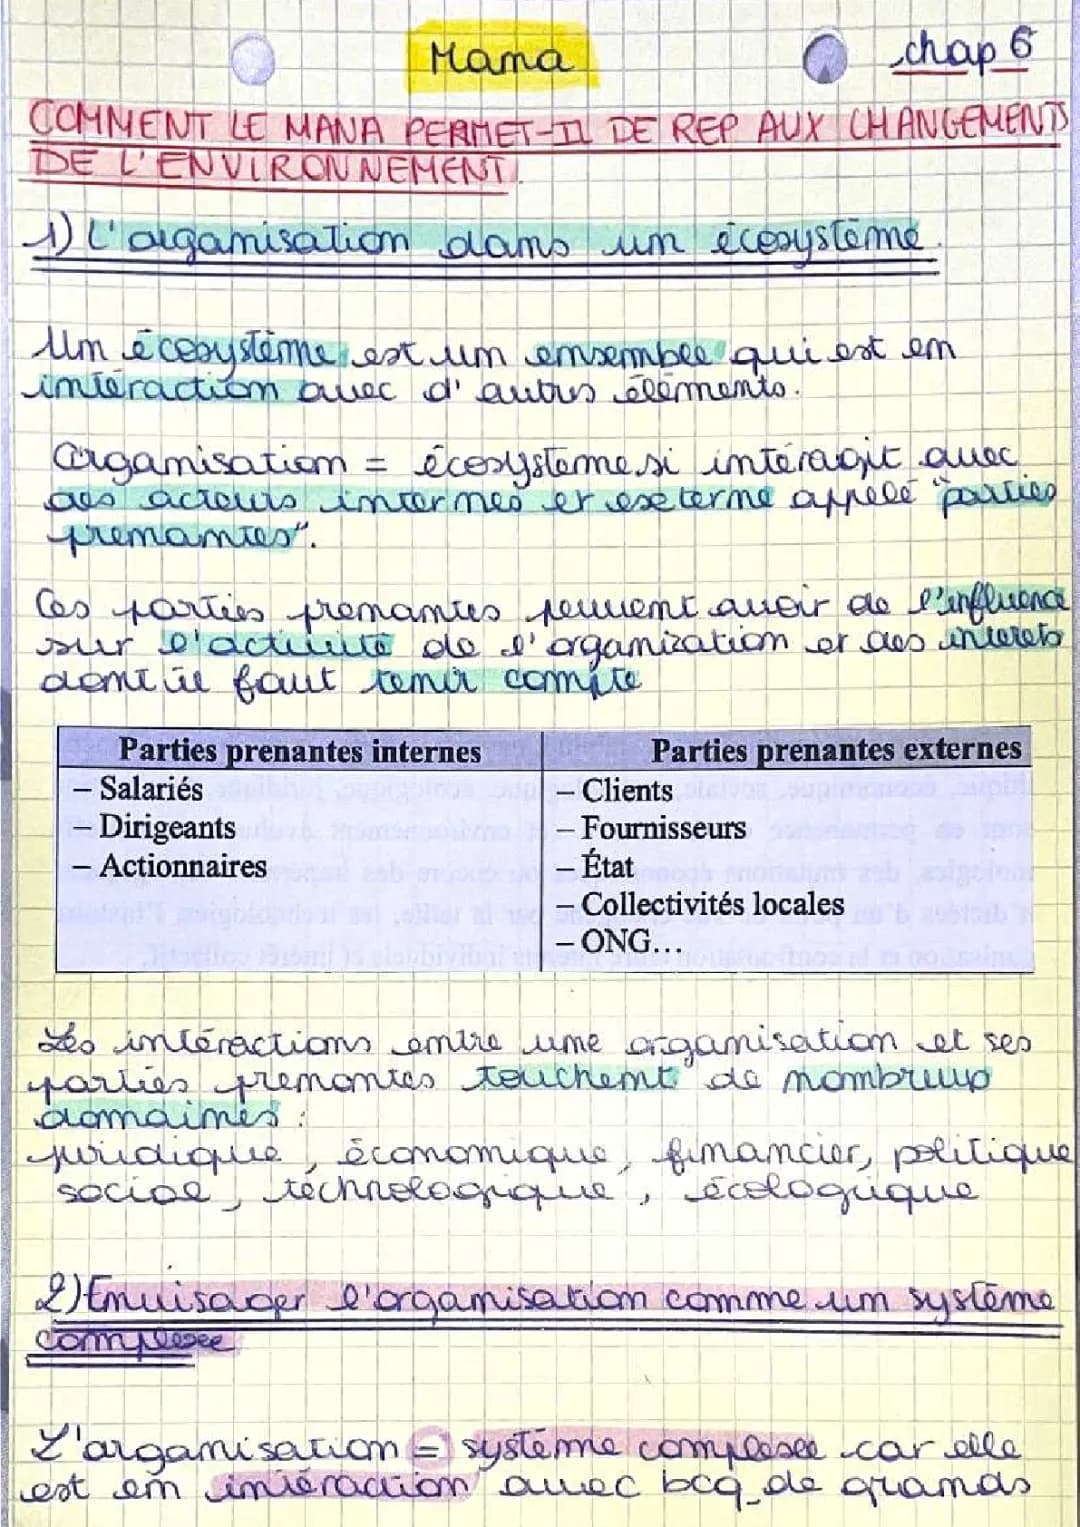 Mana
chap 6
COMMENT LE MANA PERMET-IL DE REP AUX CHANGEMENTS
DE L'ENVIRONNEMENT.
1) L'organisation dans un écosystème.
Un écosystème est un ensemble qui est en
intéraction avec d'autres élements.
Organisation = écosysteme si intéragit avec
des acteurs internes et externe appelé "parties
prenantes".
Ces parties prenantes peuvent avoir de l'influence
sur l'activité de l'organization et des interets
dont il faut tenir compte
Parties prenantes internes
Parties prenantes externes
– Salariés
– Clients
– Dirigeants
– Fournisseurs
– Actionnaires
– État
– Collectivités locales
– ONG…
Les intéractions entre une organisation et ses
parties prenantes touchent de nombreux
domaines :
juridique, économique, financier, politique
social, technologique, écologique
2) Envisager l'organisation comme un système
complexe
L'organisation = système complexe car elle
est en intéraction avec bcq de grands